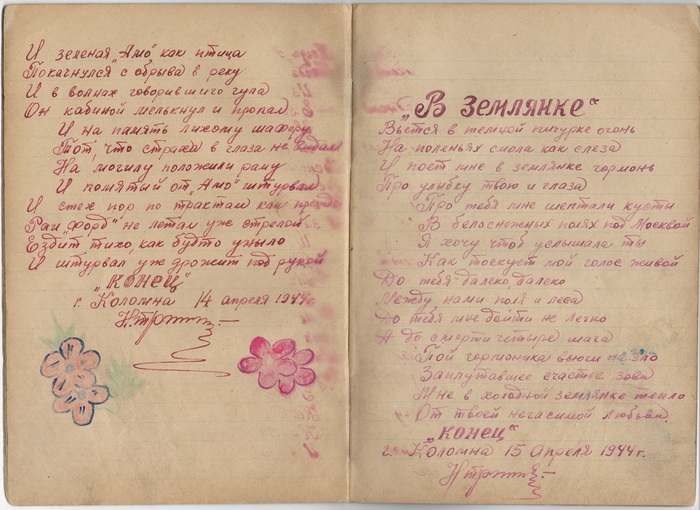 И зеленая „Амо" как птица
Покачнулся с обрыва в реку
И в волнах говорившего гула
Он кабиной мелькнул и пропал
И на память лихому шоферу
Тот, что страха в глаза не видал
На могилу положили раму
И помятый от „Амо" штурвал
И с тех пор по трактам как
Раи „Форд" не летал уж стрелой
Ездит тихо, как будто уныло
И штурвал уж дрожит под рукой
„Конец"
г. Коломна 14 апреля 1944г.
„В Землянке"
Вьется в темной пичурке огонь
На поленьях смола как слеза
И поет мне в землянке гормонь
Про улыбку твою и глаза
Про тебя мне шептали кусты
В белоснежных полях под Москвой
Я хочу чтоб услышала ты
Как тоскует мой голос живой
До тебя далеко, далеко
Между нами поля и леса
До тебя мне дойти не легко
А до смерти четыре шага
Пой гормоника вьюги на зло
Заплутавшее счастье зови
Мне в холодной землянке тепло
От твоей негасимой любви.
„Конец"
г. Коломна 15 Апреля 1944г.